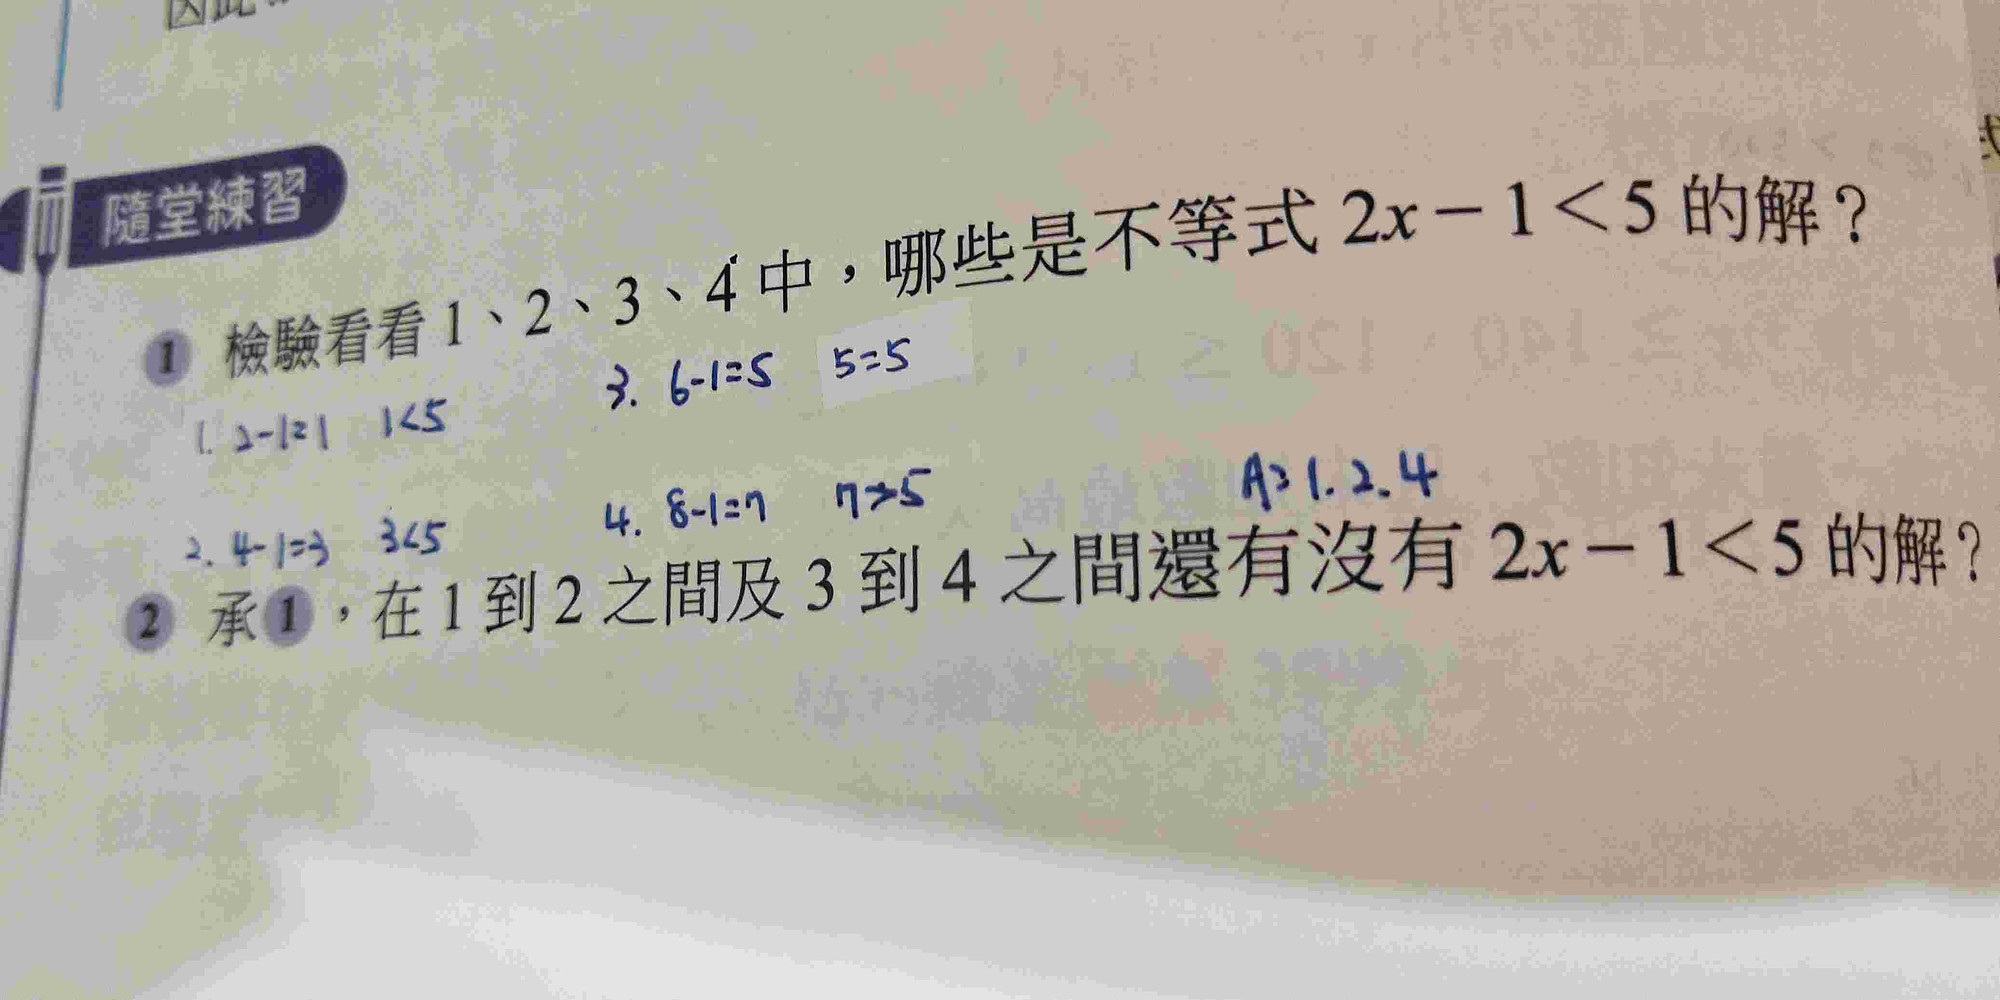 因此
隨堂練習
1 檢驗看看 1、2、3、4 中，哪些是不等式 2x－1＜5 的解？
1. 2-1=1 1<5
3. 6-1=5 5=5
2. 4-1=3 3<5
4. 8-1=7 7>5
A: 1. 2. 4
2 承1，在 1 到 2 之間及 3 到 4 之間還有沒有 2x－1＜5 的解？
式